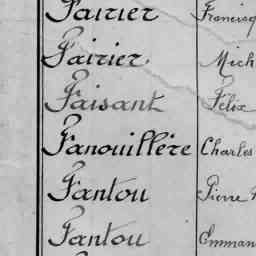 Fairier Francisq
Fairier. Mich
Faisant Félix
Fanouillère Charles
Fantou Pierre
Fantou Emman